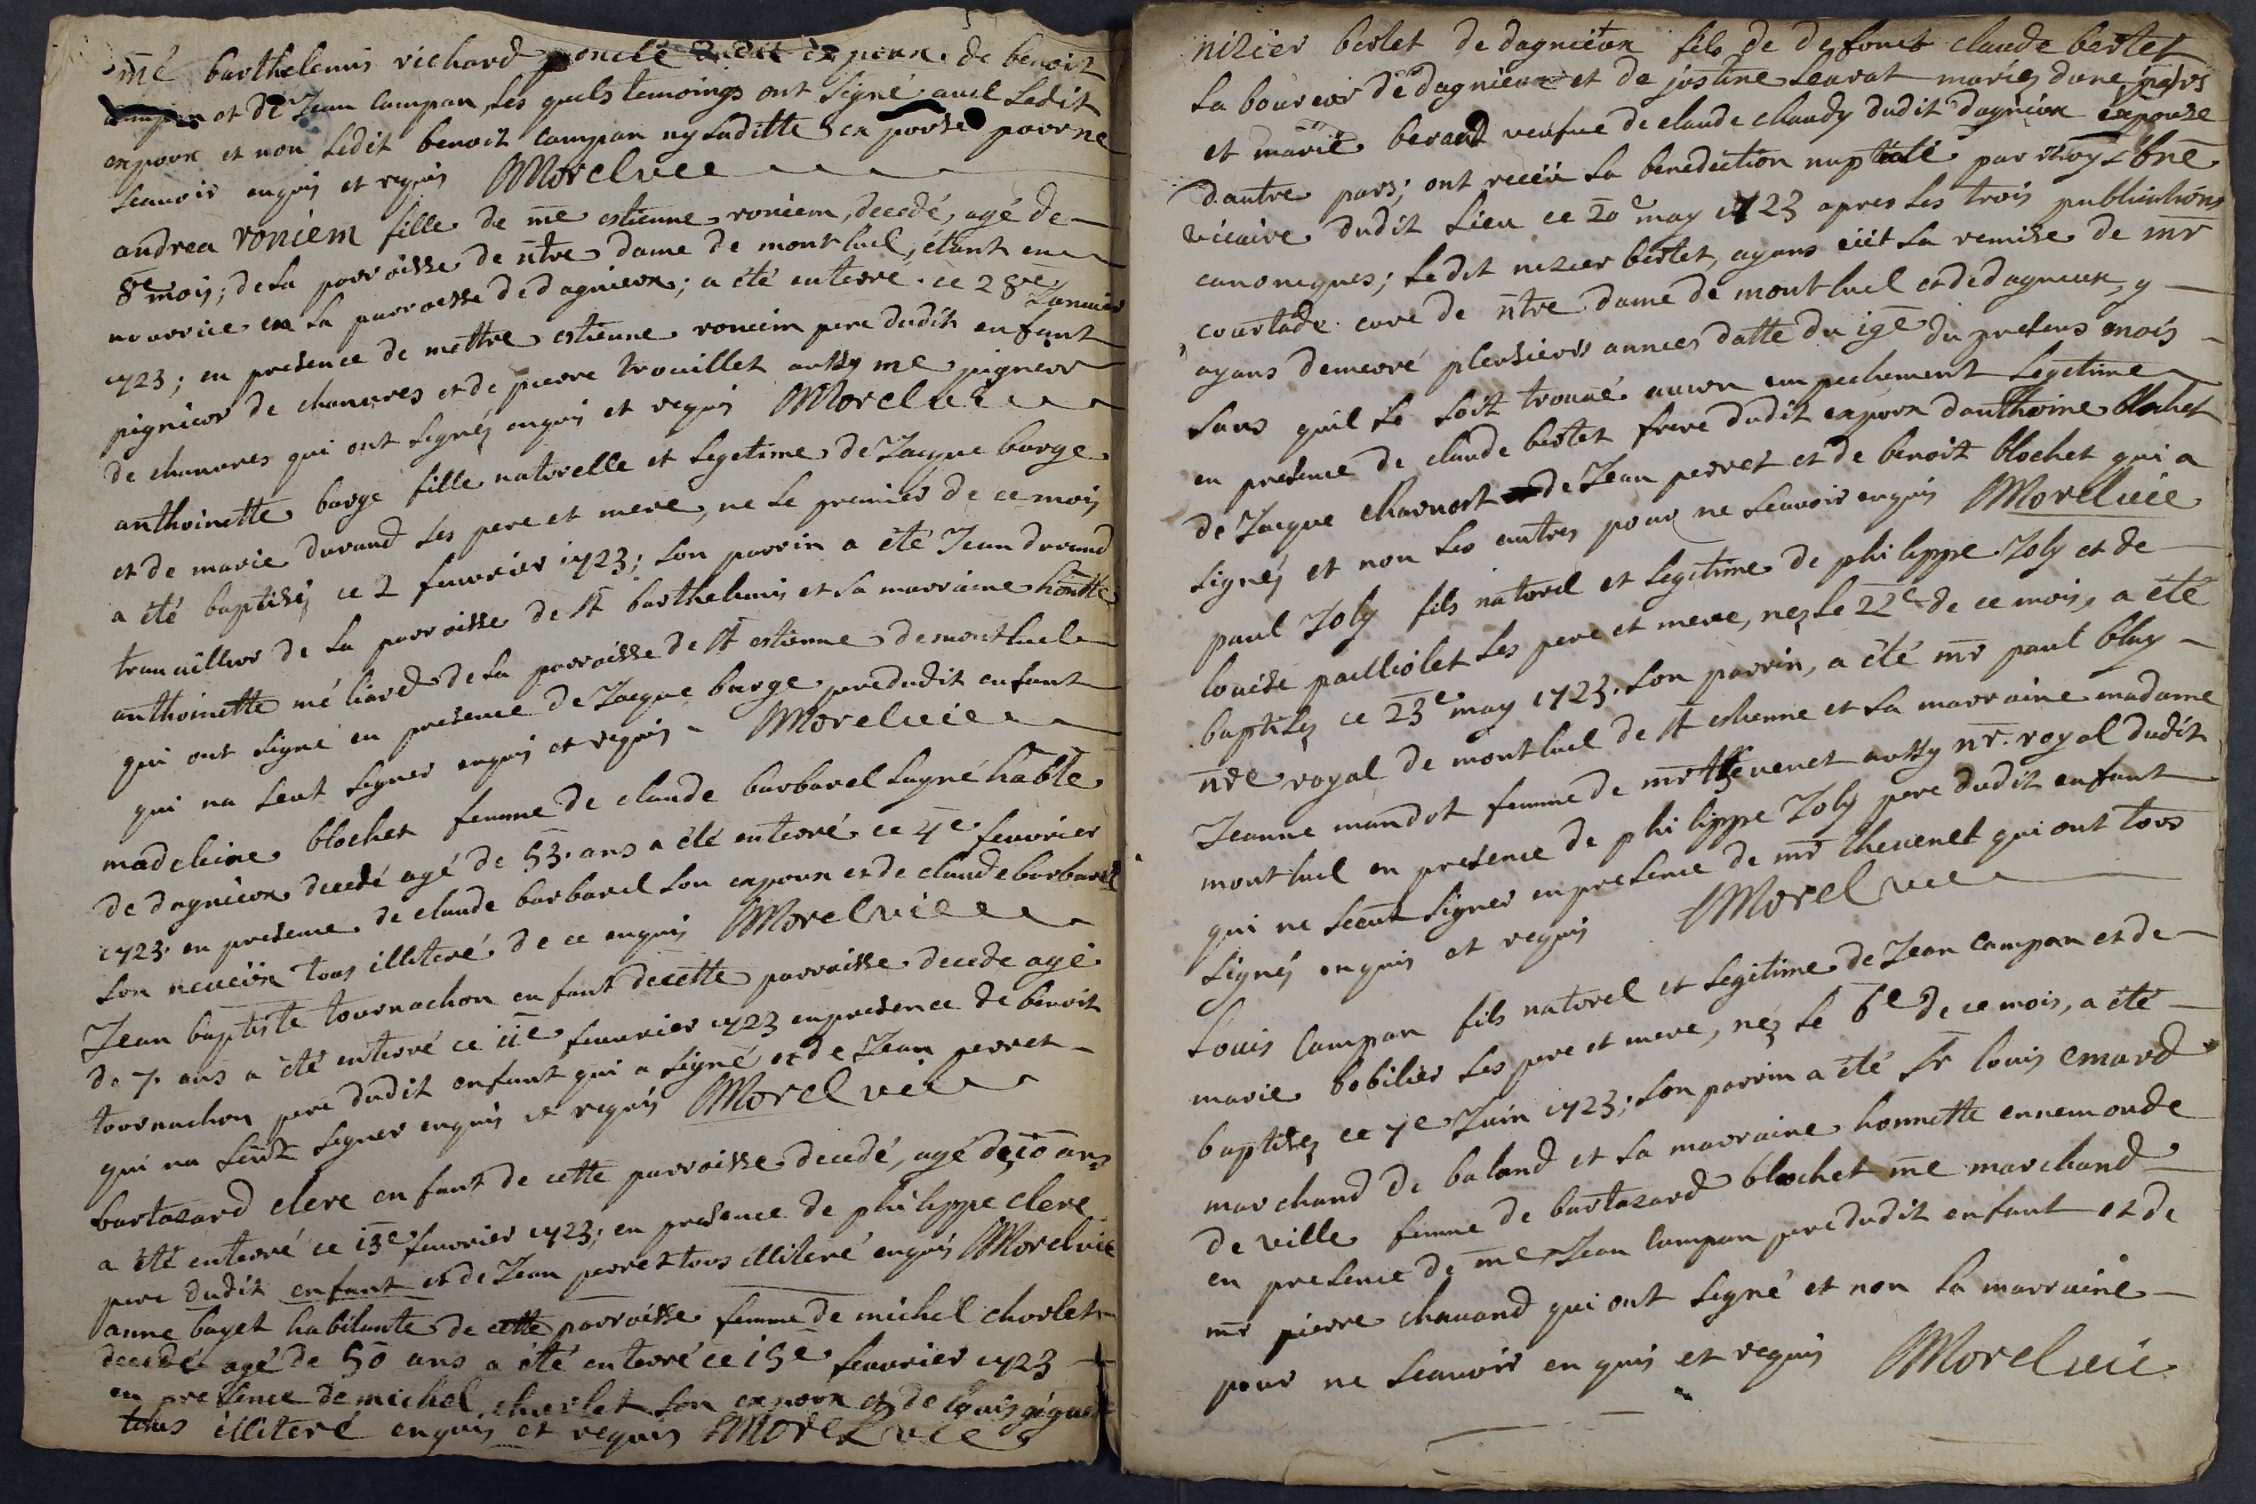 me barthelemis richard oncle dudit expoux de benoit
campan et de Jean Campan, Les quels temoings ont signé avec Ledit
expoux et non Ledit benoit campan ny Laditte expouse pour ne
scauoir enquis et requis Morel vic
andrea ronciem fille de me estienne ronciem, decedé, agé de
8e mois; de La parroisse de ntre dame de montluel, étant en
nourrice en La parroesse de dagnieux; a été enterré ce 28e Januier
1723; en presence de mettre estienne ronciem pere dudit enfant
pignieur de chanures et de pierre trouillet aussy me pigneur
de chanures qui ont signés enquis et requis Morel vic
anthoinette barge fille naturelle et Legetime de Jacque barge
et de marie durand ses pere et mere, ne Le premier de ce mois
a été baptisé ce 2 feurier 1723; son parrin a été Jean durand
trauailleur de La parroisse de st barthelemis et sa marraine honnette
anthoinette mé liard de La parroisse de st estienne de montluel
qui ont signé en presence de Jacque barge pere dudit enfant
qui na seut signer enquis et requis Morel vic
madeleine blochet femme de claude barbarel Lagné hable
de dagnieux decedé agé de 53 ans a été enterré ce 4e feuurier
1723. en presence de claude barbarel son expoux et de claude barbarel
son neueux tous illiteré de ce enquis Morel vic
Jean baptiste tournachon enfant de cette parroisse decede agé
de 7 ans a été enterré ce 11e feuurier 1723 en presence de benoit
tournachon pere dudit enfant qui a signé et de Jean perret
qui na seut signer enquis et requis Morel vic
bartazard clere enfant de cette parroisse decedé, agé de 10 ans
a été enterré ce 13e feuurier 1723; en presence de philippe clere
pere dudit enfant et de Jean perret tous illiteré enquis Morel vic
anne bayet habitante de cette parroisse femme de michel chorlet
decedé agé de 50 ans a été enterré ce 15e feuurier 1723
en presence de michel chorlet son expoux et de Louis
tous illiteré enquis et requis Morel vic
nizier bertet de dagnieux fils de defonct claude bertet
Laboureur de dagnieux et de justine Leurat mariés dune pars
et marie beraud veufue de claude chaudy dudit dagnieux expouse
d'autre pars; ont receu La benediction nuptiale par moy
vicaire dudit Lieu ce 20e may 1723 apres Les trois publications
canoniques; Ledit nizier bertet, ayans eüt La remise de mr
courtade cure de ntre dame de montluel et de dagnieux, y
ayans demeuré plusieurs annees datte du 19e du presens mois
sans quil se soit trouué aucun empechement Legetime
en presence de claude bertet frere dudit expoux danthoine blochet
de Jacque charnort de Jean perret et de benoit blochet qui a
signés et non Les autres pour ne scauoir enquis Morel vic
paul Joly fils naturel et Legitime de philippe Joly et de
Louise pailliolet ses pere et mere, nez Le 22e de ce mois, a été
baptisez ce 23e may 1723. son parrin, a été mr paul blay
nre royal de montluel de st estienne et sa marraine madame
Jeanne mandot femme de mr theuenet aussy nr. royal dudit
montluel en presence de philippe Joly pere dudit enfant
qui ne sceut signer en presence de mr theuenet qui ont tous
signés enquis et requis Morel vic
Louis Campan fils naturel et Legitime de Jean Campan et de
marie bobilier ses pere et mere, nez Le 6e de ce mois, a été
baptisez ce 7e Juin 1723; son parrin a été Sr Louis emard
marchand de baland et sa marraine honnette ennemonde
de ville femme de bartazard blochet me marchand
en presence de me Jean Campan pere dudit enfant et de
mr pierre chauand qui ont signé et non La marraine
pour ne scauoir enquis et requis Morel vic